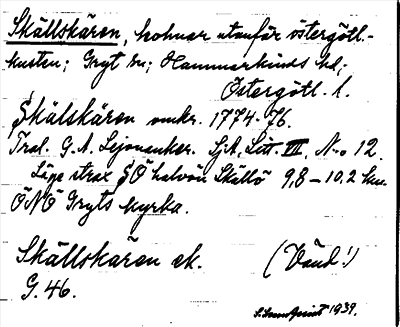 Skällskären, holmar utanför östergötl.-
kusten; Gryt sn; Hammarkinds hd;
Östergötl. l.
Skälskären omkr. 1774-76.
Trol. G. A. Lejonanker. Sjk, Litt. III, No 12.
Läge strax SÖ halvön Skällö 9,8-10,2 km
ÖNÖ Gryts kyrka.
Skällskären ek.
(Vänd!)
G. 46.
1939.